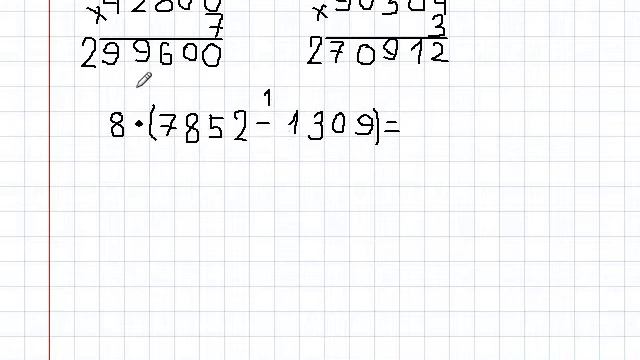 ×42800 ×90304
7 3
299600 270912
1
8 · (7852 - 1309) =